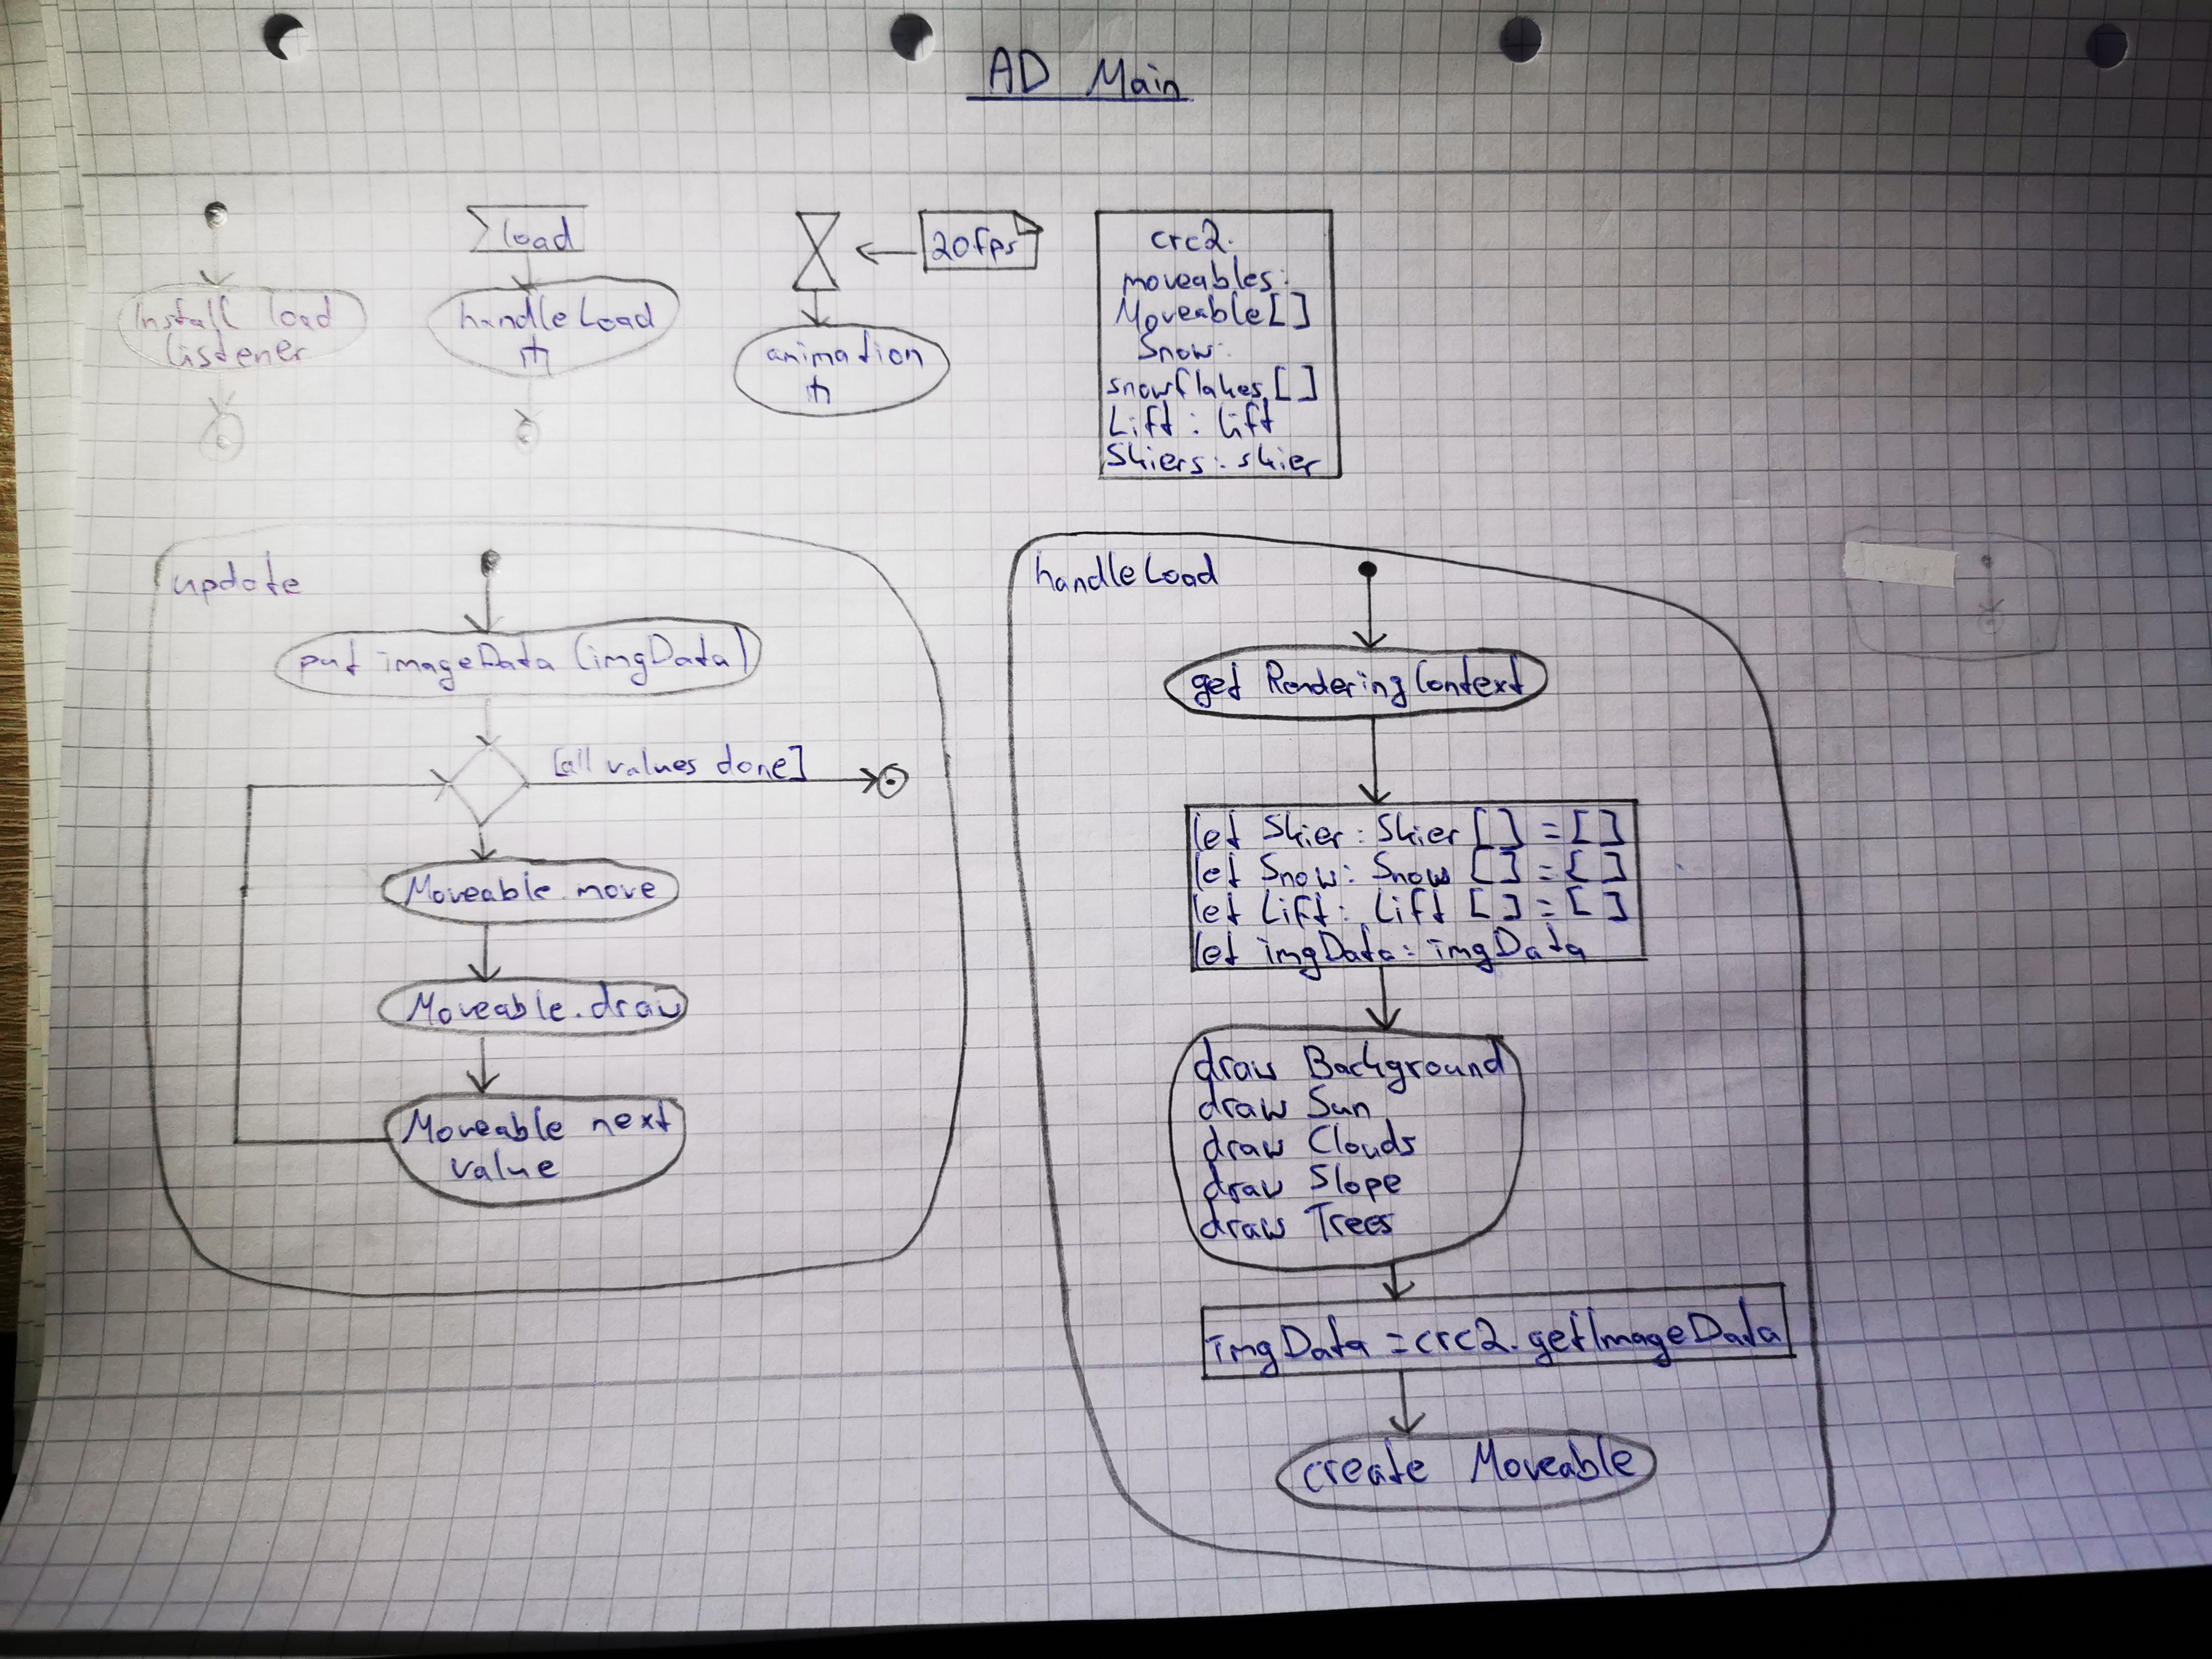 AD Main
Install load
Listener
load
handleLoad
20fps
animation
crc2.
moveables:
Moveable[]
Snow:
snowflakes[]
Lift: lift
Skiers: skier
update
put imageData (imgData)
[all values done]
Moveable.move
Moveable.draw
Moveable next
value
handleLoad
get RenderingContext
let Skier: Skier [] = []
let Snow: Snow [] = []
let Lift: Lift [] = []
let imgData: imgData
draw Background
draw Sun
draw Clouds
draw Slope
draw Trees
imgData = crc2.getImageData
create Moveable